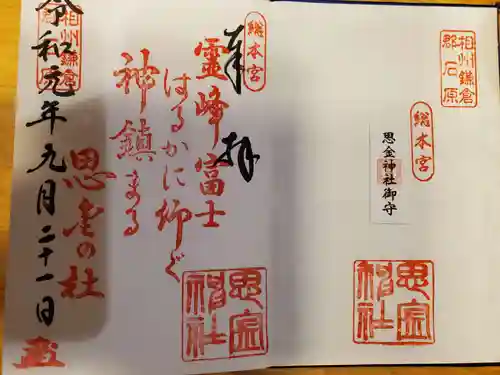 総本宮
相州鎌倉
郡石原
総本宮
思金神社御守
思金
神社
奉拝
霊峰富士
はるかに仰ぐ
神鎮まる
思金の杜
令和元年九月二十一日
相州鎌倉
思金
神社